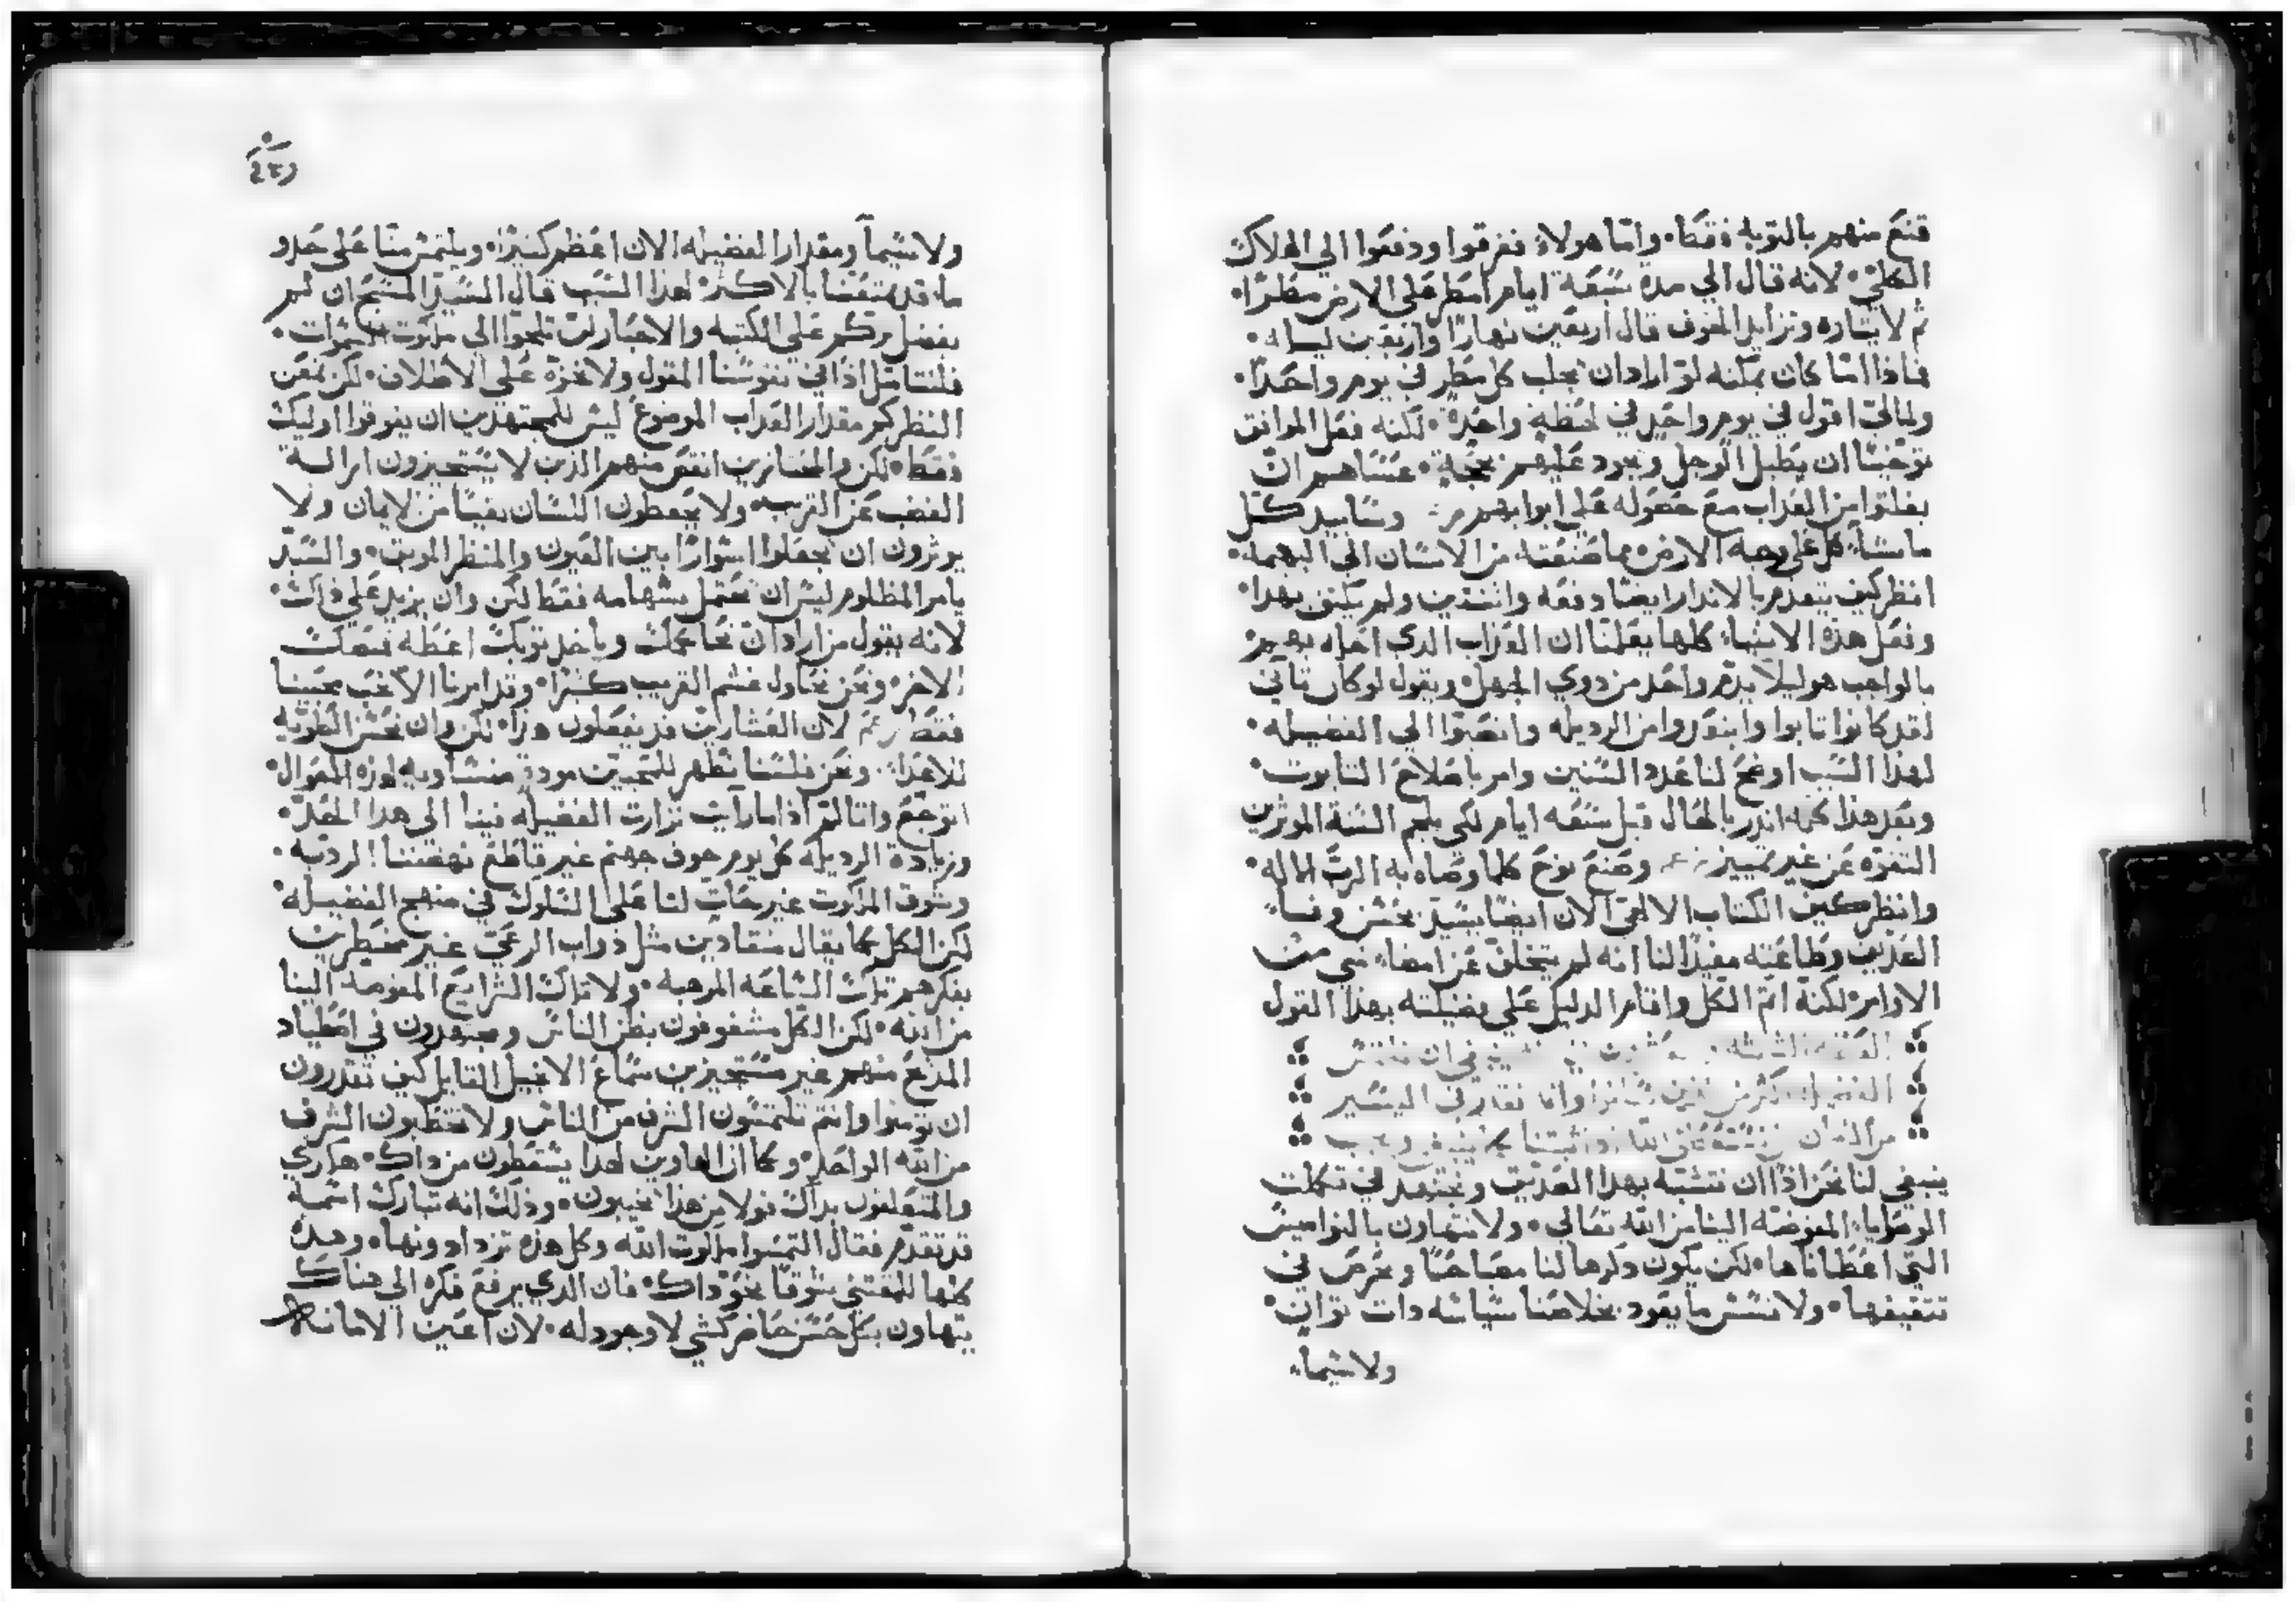 قنع منهم بالتوبه فقط٠ واما هولاء فغرقوا ودفعوا الي الهلاك
الكلي٠ لانه قال الي مدة سبعة ايام امطر علي الارض مطرًا٠
ثم لايثاره وتزايد الخوف قال اربعين نهارًا واربعين ليله٠
فماذا اما كان يمكنه لو اراد ان يجلب كل مطر في يوم واحدًا٠
ولمالي اقول في يوم واحد في لحظةٍ واحدةٍ٠ لكنه فعل الموافق
توخيًا ان يطيل الوجل ويجود عليهم بحجةٍ٠ عساهم ان
يفلتوا من العداب مع حصوله علي ابوابهم وسابيد كل
ما نشأ كل علي وجه الارض مما صنعته من الانسان الي البهيمه٠
انظر كيف يتقدم بالاندار ايضًا دفعه واثنتين ولم يكتف بهدا٠
وفعل هذه الاشياء كلها يعلمنا ان العداب الدي احله بهم
بالواجب هو ليلا يدم واحد من دوي الجهل٠ ويقول لو كان تاني
لقد كانوا تابوا وابتعدوا من الرديله وانضبوا الي الفضيله٠
لهدا السبب اوضح لنا عدد السنين وامر باصلاح التابوت٠
وبعد هدا كله اندر بالحال قبل سبعه ايام لكي يلجم السنة الموثرين
التفوه عن غير تمييز وصنع نوح كلما وصاه به الرب الاله٠
وانظر كيف الكتاب الالهي الان ايضًا يشيد بحسن وفاء
الصديق وطاعته مفيدًا لنا انه لم يتخلف عن امضاء شي من
الاوامر٠ لكنه اتم الكل واقام الدليل علي فضيلته بهدا القول
العظه في ان نلتمس
الفضيله اكثر من وانا نقدر في اليسير
من الزمان
ينبغي لنا نحن اذًا ان نتشبه بهدا الصديق ونجتهد في تكملت
الوصايا المفوضه الينا من الله تعالي٠ ولا نتهاون بالنواميس
التي اعطاناها٠ لكن يكون دكرها لنا مصباحًا ونحرص في
تتقيفها٠ ولا ننسس ما يقود بخلاصنا سياسه دات توانٍ٠
ولا سيما
ولا سيمآ ومقدار الفضيله الان اعظم كثيرًا٠ ويلتمس منا علي حدو
ما قد متعنا بالاكثر٠ لهدا السبب قال السيد المسيح ان لم
يفضل بركم علي الكتبه والاحبار لن تلجوا الي ملكوت السموات٠
فلنتامل اذًا في نفوسنا المقول ولا نجزه علي الاطلاق٠ لكن نمعن
النظر كم مقدار العداب الموضوع ليس للمجتهدين ان يفوقوا اوليك
فقط٠ لكن والمختارين انقص منهم الدين لا يستجيزون ازالة
الغضب عن القريب٠ ولا يحفظون اللسان نقيًا من الايمان ولا
يوثرون ان يجعلوا اسوارًا بين العيون والمنظر الموبق٠ والسيد
يامر المظلوم ليس ان يحتمل بشهامه فقط لكن وان يزيد علي ذلك٠
لانه يقول من اراد ان يحاكمك وياخد توبك اعطه فضلت
الاخر٠ ونحن نحاول غشم القريب كثيرًا٠ وقد امرنا الا نحب محبينا
فقط لان العشارين قد يفعلون هدا٠ لكن وان نحسن الطويه
للاعداء ونحن فلسنا نظهر للمحبين مودة متساويه لهده الحال٠
اتوجع واتالم اذا ما رايت نزارت الفضيله فينا الي هدا الحد٠
وزيادة الرديله كل يوم خوف جهنم غير قاطع نهضتنا الرديه٠
وشوق الملكوت غير حاثٍ لنا علي السلوك في منهج الفضيله
لكن الكل كما يقال منقادين مثل ذواب الرعي غير مخطرين
بفكرهم تلك الساعه المرهبه٠ ولا تلك الشرايع المفوضه الينا
من ادنه٠ لكن الكل مشغوفون بظن الناس ومجتهدون في اصطياد
المدح منهم غير مستجيزين سماع الانجيل القايل كيف تقدرون
ان تومنوا وانتم تلتمسون الشرف من الناس ولا تطلبون الشرف
من الله الواحد٠ وكما ان الهاوين لهدا يسقطون من داك٠ هكدي
والمتعلقون بداك فولا من هدا يخيبون٠ ودلك انه تبارك اسمه
قد تقدم فقال التمسوا ملكوت الله وكل هده تزداد ونها٠ وهده
كلها للمقتني شوقًا نحو داك٠ فان الدي يرفع فكره الي هناك
يتهاون بكل حسن حاضر كشي لا وجود له٠ لان اعين الامانه